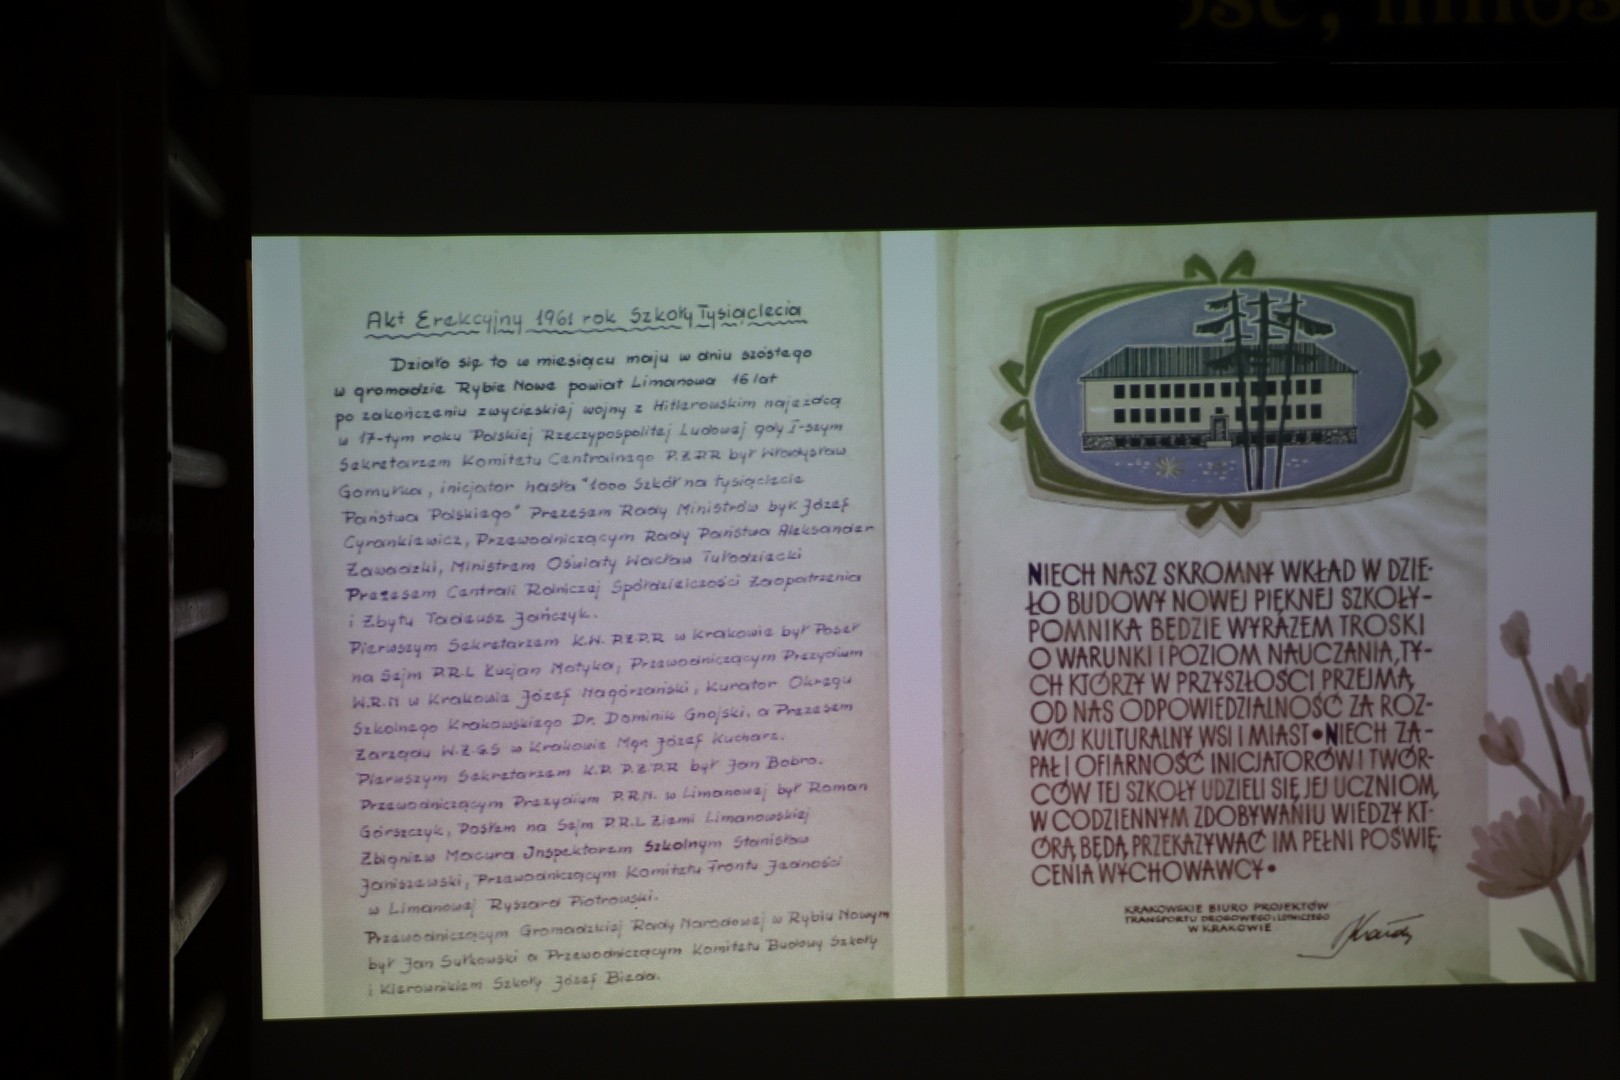 ość, miłoś
Akt Erekcyjny 1961 rok Szkoły Tysiąclecia
Działo się to w miesiącu maju w dniu szóstego
w gromadzie Rybie Nowe powiat Limanowa 16 lat
po zakończeniu zwycięskiej wojny z Hitlerowskim najeźdcą
w 17-tym roku Polskiej Rzeczypospolitej Ludowej gdy I-szym
Sekretarzem Komitetu Centralnego P.Z.P.R był Władysław
Gomułka, inicjator hasła "1000 Szkół na tysiąclecie
Państwa Polskiego" Prezesem Rady Ministrów był Józef
Cyrankiewicz, Przewodniczącym Rady Państwa Aleksander
Zawadzki, Ministrem Oświaty Wacław Tułodziecki
Prezesem Centrali Rolniczej Spółdzielczości Zaopatrzenia
i Zbytu Tadeusz Jańczyk.
Pierwszym Sekretarzem K.W. P.Z.P.R w Krakowie był Poseł
na Sejm P.R.L Łucjan Motyka, Przewodniczącym Prezydium
W.R.N w Krakowie Józef Nagórzański, Kurator Okręgu
Szkolnego Krakowskiego Dr. Dominik Gnojski, a Prezesem
Zarządu W.Z.G.S w Krakowie Mgr Józef Kucharz.
Pierwszym Sekretarzem K.P. P.Z.P.R był Jan Bobro.
Przewodniczącym Prezydium P.R.N. w Limanowej był Roman
Górszczyk, Posłem na Sejm P.R.L Ziemi Limanowskiej
Zbigniew Macura Inspektorem Szkolnym Stanisław
Janiszewski, Przewodniczącym Komitetu Frontu Jedności
w Limanowej Ryszard Piotrowski.
Przewodniczącym Gromadzkiej Rady Narodowej w Rybiu Nowym
był Jan Sułkowski a Przewodniczącym Komitetu Budowy Szkoły
i Kierownikiem Szkoły Józef Bieda.
NIECH NASZ SKROMNY WKŁAD W DZIE-
ŁO BUDOWY NOWEJ PIĘKNEJ SZKOŁY-
POMNIKA BĘDZIE WYRAZEM TROSKI
O WARUNKI I POZIOM NAUCZANIA, TY-
CH KTÓRZY W PRZYSZŁOŚCI PRZEJMĄ
OD NAS ODPOWIEDZIALNOŚĆ ZA ROZ-
WÓJ KULTURALNY WSI I MIAST•NIECH ZA-
PAŁ I OFIARNOŚĆ INICJATORÓW I TWÓR-
CÓW TEJ SZKOŁY UDZIELI SIĘ JEJ UCZNIOM,
W CODZIENNYM ZDOBYWANIU WIEDZY KT-
ÓRĄ BĘDĄ PRZEKAZYWAĆ IM PEŁNI POŚWIĘ-
CENIA WYCHOWAWCY•
KRAKOWSKIE BIURO PROJEKTÓW
TRANSPORTU DROGOWEGO I LOTNICZEGO
W KRAKOWIE